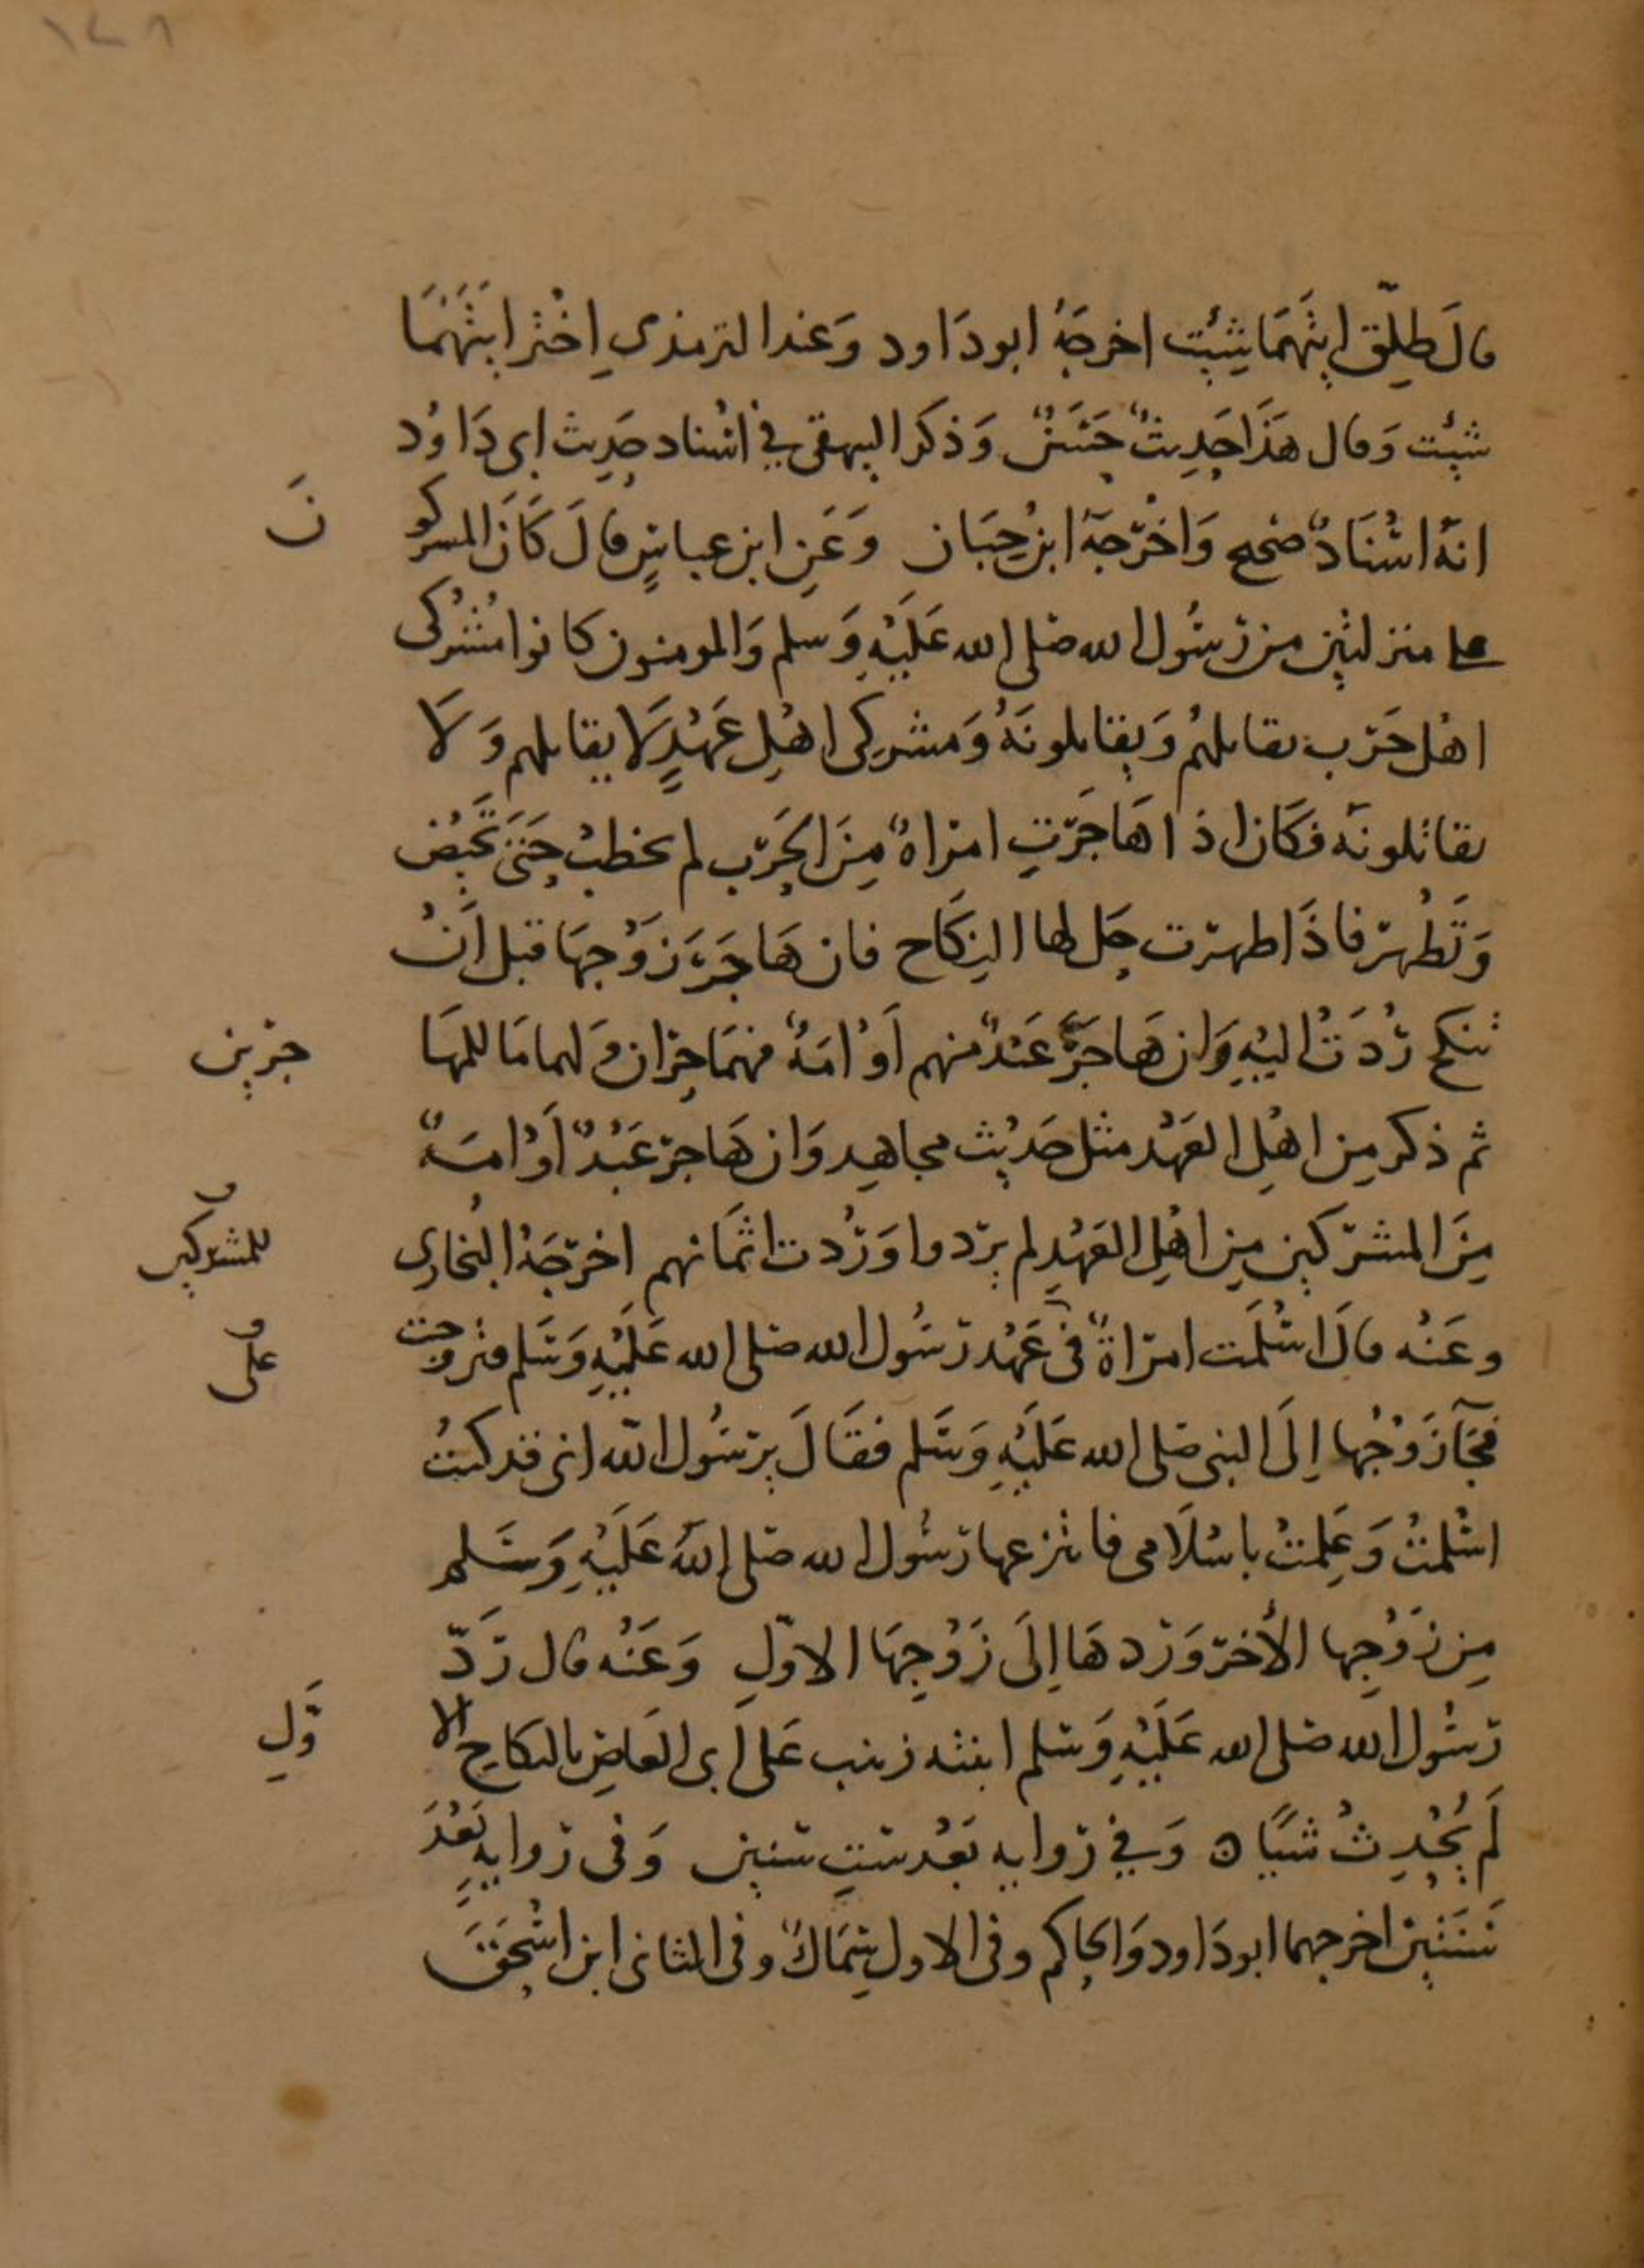 ١٤٨
قال طلّق ايتهما شئت اخرجه ابو داود وعند الترمذي اختر ايتهما
شئت وقال هذا حديث حسن وذكر البيهقي في اسناد حديث ابي داود
انه اسناد صحيح واخرجه ابن حبان وعن ابن عباس قال كان المشركو
نَ
على منزلتين من رسول الله صلى الله عليه وسلم والمومنون كانوا مشركى
اهل حرب يقاتلهم ويقاتلونه ومشركى اهل عهد لا يقاتلهم ولا
يقاتلونه فكان اذا هاجرت امراة من الحرب لم تخطب حتى تحيض
وتطهر فاذا طهرت حل لها النكاح فان هاجر زوجها قبل ان
تنكح ردت اليه وان هاجر عبد منهم او امة فهما حران ولهما ما للمها
جرين
ثم ذكر من اهل العهد مثل حديث مجاهد وان هاجر عبد او امة
من المشركين من اهل العهد لم يردوا وردت اثمانهم اخرجه البخاري
للمشركين
وعنه قال اسلمت امراة في عهد رسول الله صلى الله عليه وسلم فتزوجت
على
فجآ زوجها إلى النبي صلى الله عليه وسلم فقال يرسول الله اني قد كنت
اسلمت وعلمت باسلامي فانتزعها رسول الله صلى الله عليه وسلم
من زوجها الأخر وردها إلى زوجها الاوّل وعنه قال ردّ
رسول الله صلى الله عليه وسلم ابنته زينب على ابي العاص بالنكاح الا
وّل
لم يحدث شيًا ه وفي رواية بعد ست سنين وفي رواية بعد
سنتين اخرجهما ابو داود والحاكم وفي الاول سماك وفي الثاني ابن اسحق